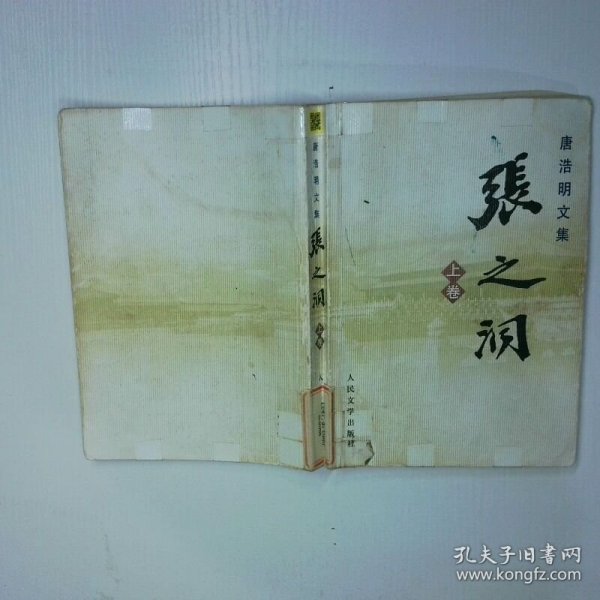 唐浩明文集
張之洞
上卷
人民文学出版社
唐浩明文集
張之洞
上卷
人
孔夫子旧书网
www.kongfz.com